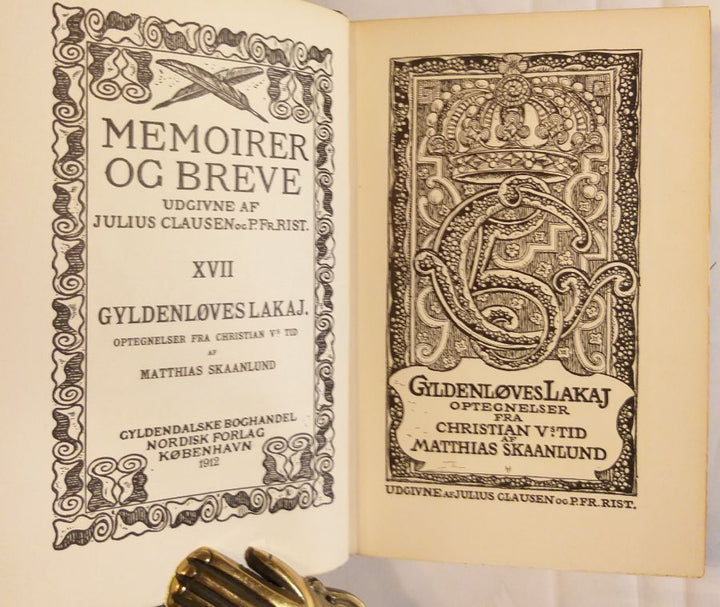 MEMOIRER
OG BREVE
UDGIVNE AF
JULIUS CLAUSEN OG P.FR.RIST.
XVII
GYLDENLØVES LAKAJ.
OPTEGNELSER FRA CHRISTIAN Vˢ TID
AF
MATTHIAS SKAANLUND
GYLDENDALSKE BOGHANDEL
NORDISK FORLAG
KØBENHAVN
1912
GYLDENLØVES LAKAJ
OPTEGNELSER
FRA
CHRISTIAN Vˢ TID
AF
MATTHIAS SKAANLUND
UDGIVNE AF JULIUS CLAUSEN OG P.FR.RIST.